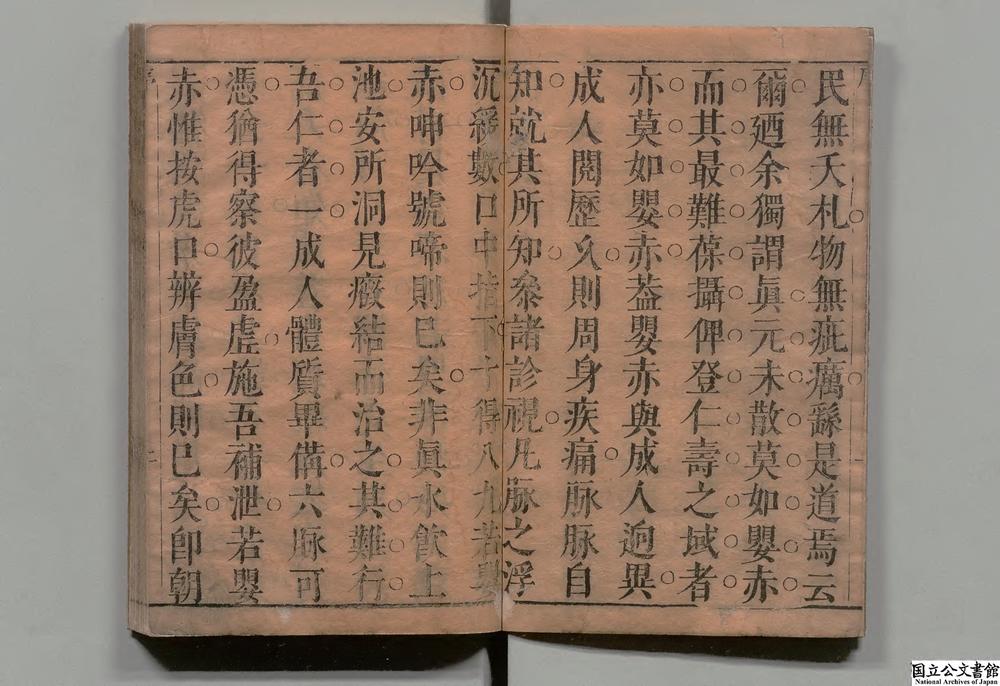 民無夭札物無疵癘繇是道焉云
爾廼余獨謂眞元未散莫如嬰赤
而其最難葆攝俾登仁壽之域者
亦莫如嬰赤葢嬰赤與成人逈異
成人閱歷久則周身疾痛脉脉自
知就其所知叅諸診視凡脉之浮
沉緩數口中指下十得八九若嬰
赤呻吟號啼則巳矣非眞水飮上
池安所洞見癥結而治之其難行
吾仁者一成人體質畢備六脉可
憑猶得察彼盈虛施吾補泄若嬰
赤惟按虎口辨膚色則巳矣卽朝
序
一
序
二
国立公文書館
National Archives of Japan